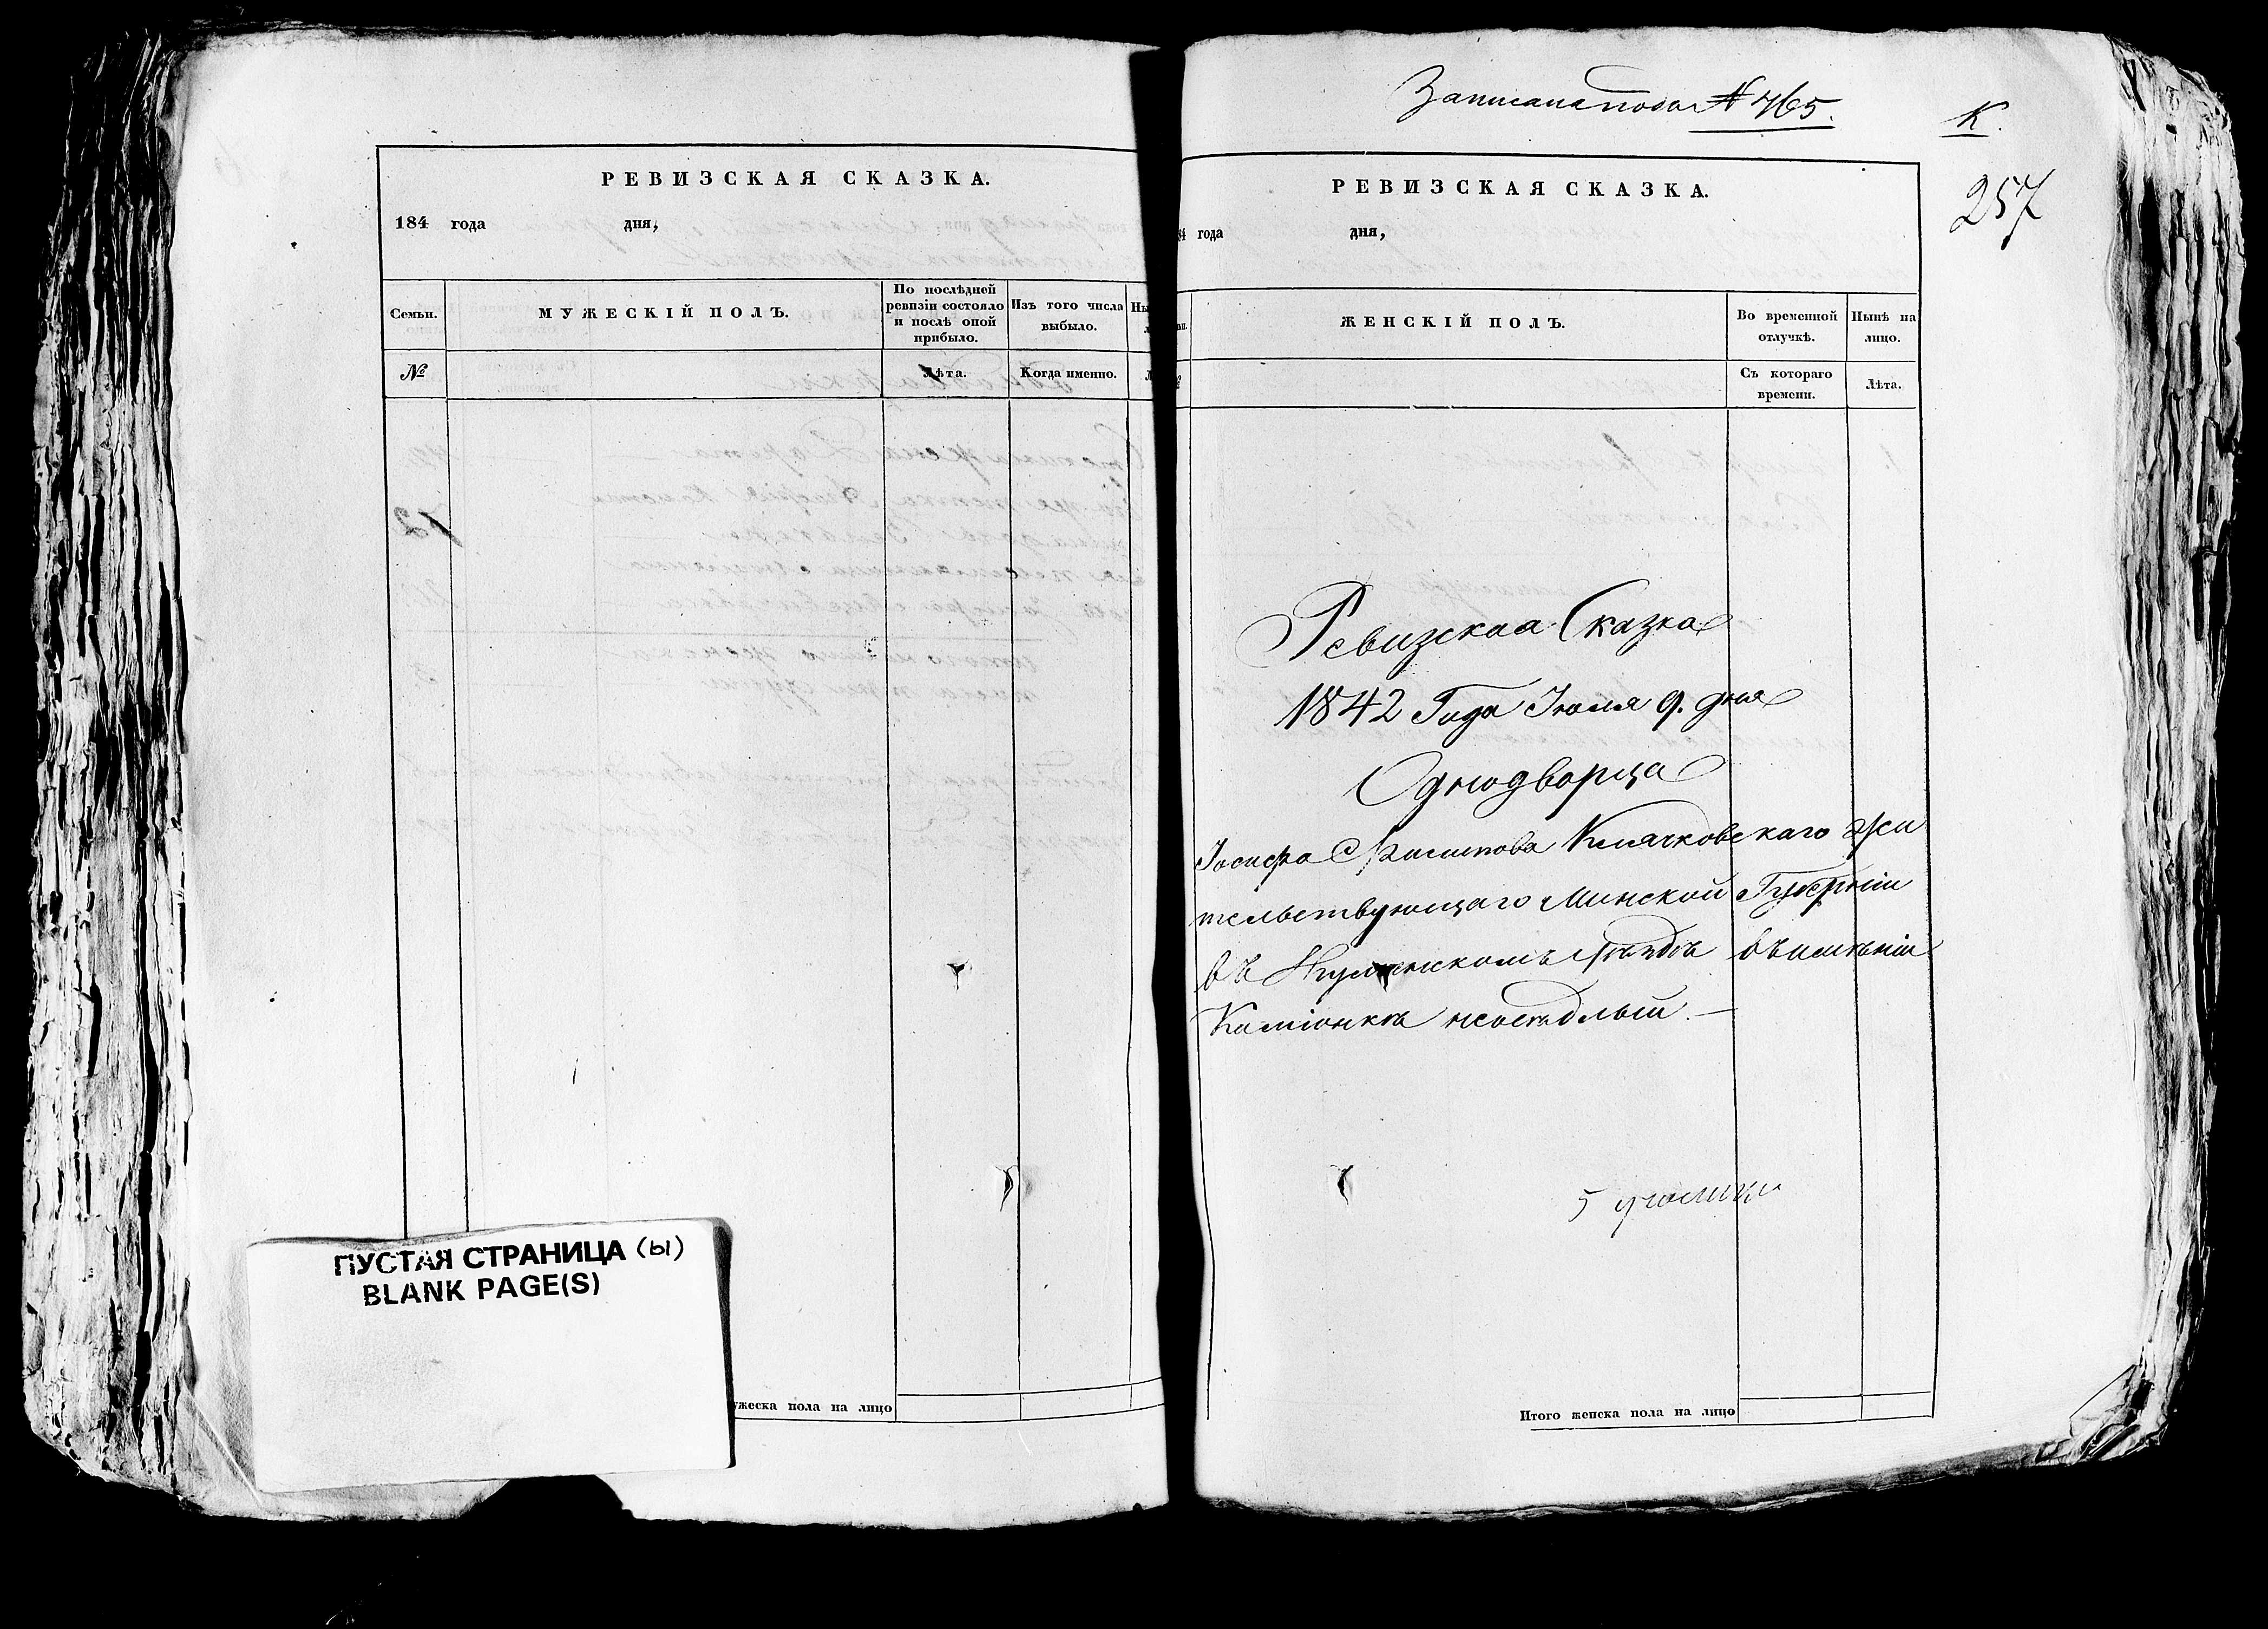 РЕВИЗСКАЯ СКАЗКА.
184 года дня,
Семьи.
МУЖЕСКІЙ ПОЛЪ.
По послѣдней ревизіи состояло и послѣ оной прибыло.
Изъ того числа выбыло.
Ны
№
Лѣта.
Когда именно.
ПУСТАЯ СТРАНИЦА (ы)
BLANK PAGE(S)
ужеска пола на лицо
Записана подъ № 765.
К.
257
РЕВИЗСКАЯ СКАЗКА.
4 года дня,
ЖЕНСКІЙ ПОЛЪ.
Во временной отлучкѣ.
Нынѣ на лицо.
Съ котораго времени.
Лѣта.
Ревизская Сказка
1842 Года Іюля 9. дня
Однодворца
Іосифа Филипова Клячковскаго жи
тельствующаго Минской Губерніи
въ Игуменскомъ уѣздѣ въ имѣніи
Каміонкѣ неосѣдлый. —
5
Итого женска пола на лицо